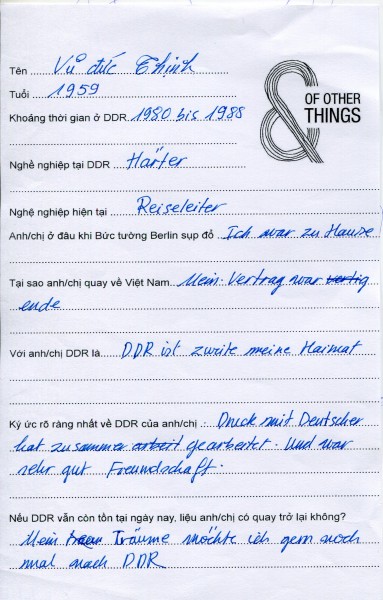 Tên Vũ đức Thịnh
OF OTHER
THINGS
Tuổi 1959
Khoảng thời gian ở DDR 1980 bis 1988
Nghề nghiệp tại DDR Härter
Nghệ nghiệp hiện tại Reiseleiter
Anh/chị ở đâu khi Bức tường Berlin sụp đổ Ich war zu Hause
Tại sao anh/chị quay về Việt Nam Mein Vertrag war vertig
ende
Với anh/chị DDR là DDR ist zweite meine Haimat
Ký ức rõ ràng nhất về DDR của anh/chị : Druck mit Deutscher
hat zusammer arbeit gearbeitet. Und war
sehr gut Freundschaft.
Nếu DDR vẫn còn tồn tại ngày nay, liệu anh/chị có quay trở lại không?
Mein Träume möchte ich gern noch
mal nach DDR